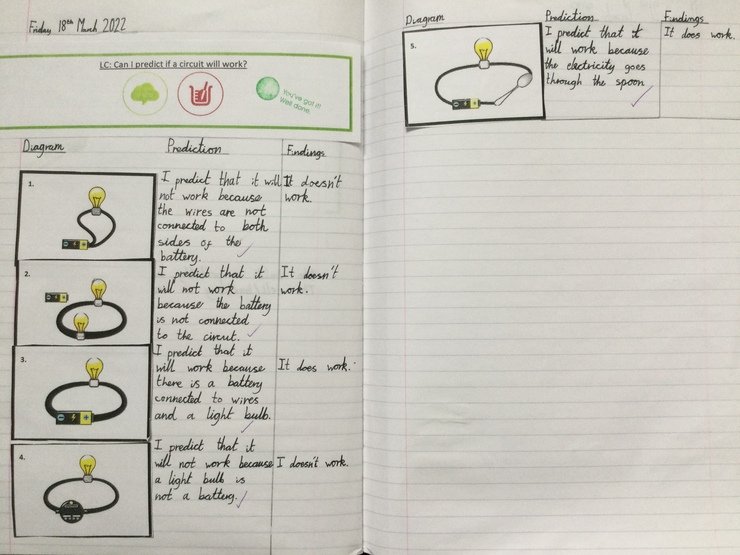 Friday 18th March 2022
LC: Can I predict if a circuit will work?
You've got it!
Well done.
Diagram Prediction Findings
1.
I predict that it will
not work because
the wires are not
connected to both
sides of the
battery.
It doesn't
work.
2.
I predict that it
will not work
because the battery
is not connected
to the circut.
It doesn't
work.
3.
I predict that it
will work because
there is a battery
connected to wires
and a light bulb.
It does work.
4.
I predict that it
will not work because
a light bulb is
not a battery.
I doesn't work.
Diagram Prediction Findings
5.
I predict that it
will work because
the electricity goes
through the spoon
It does work.